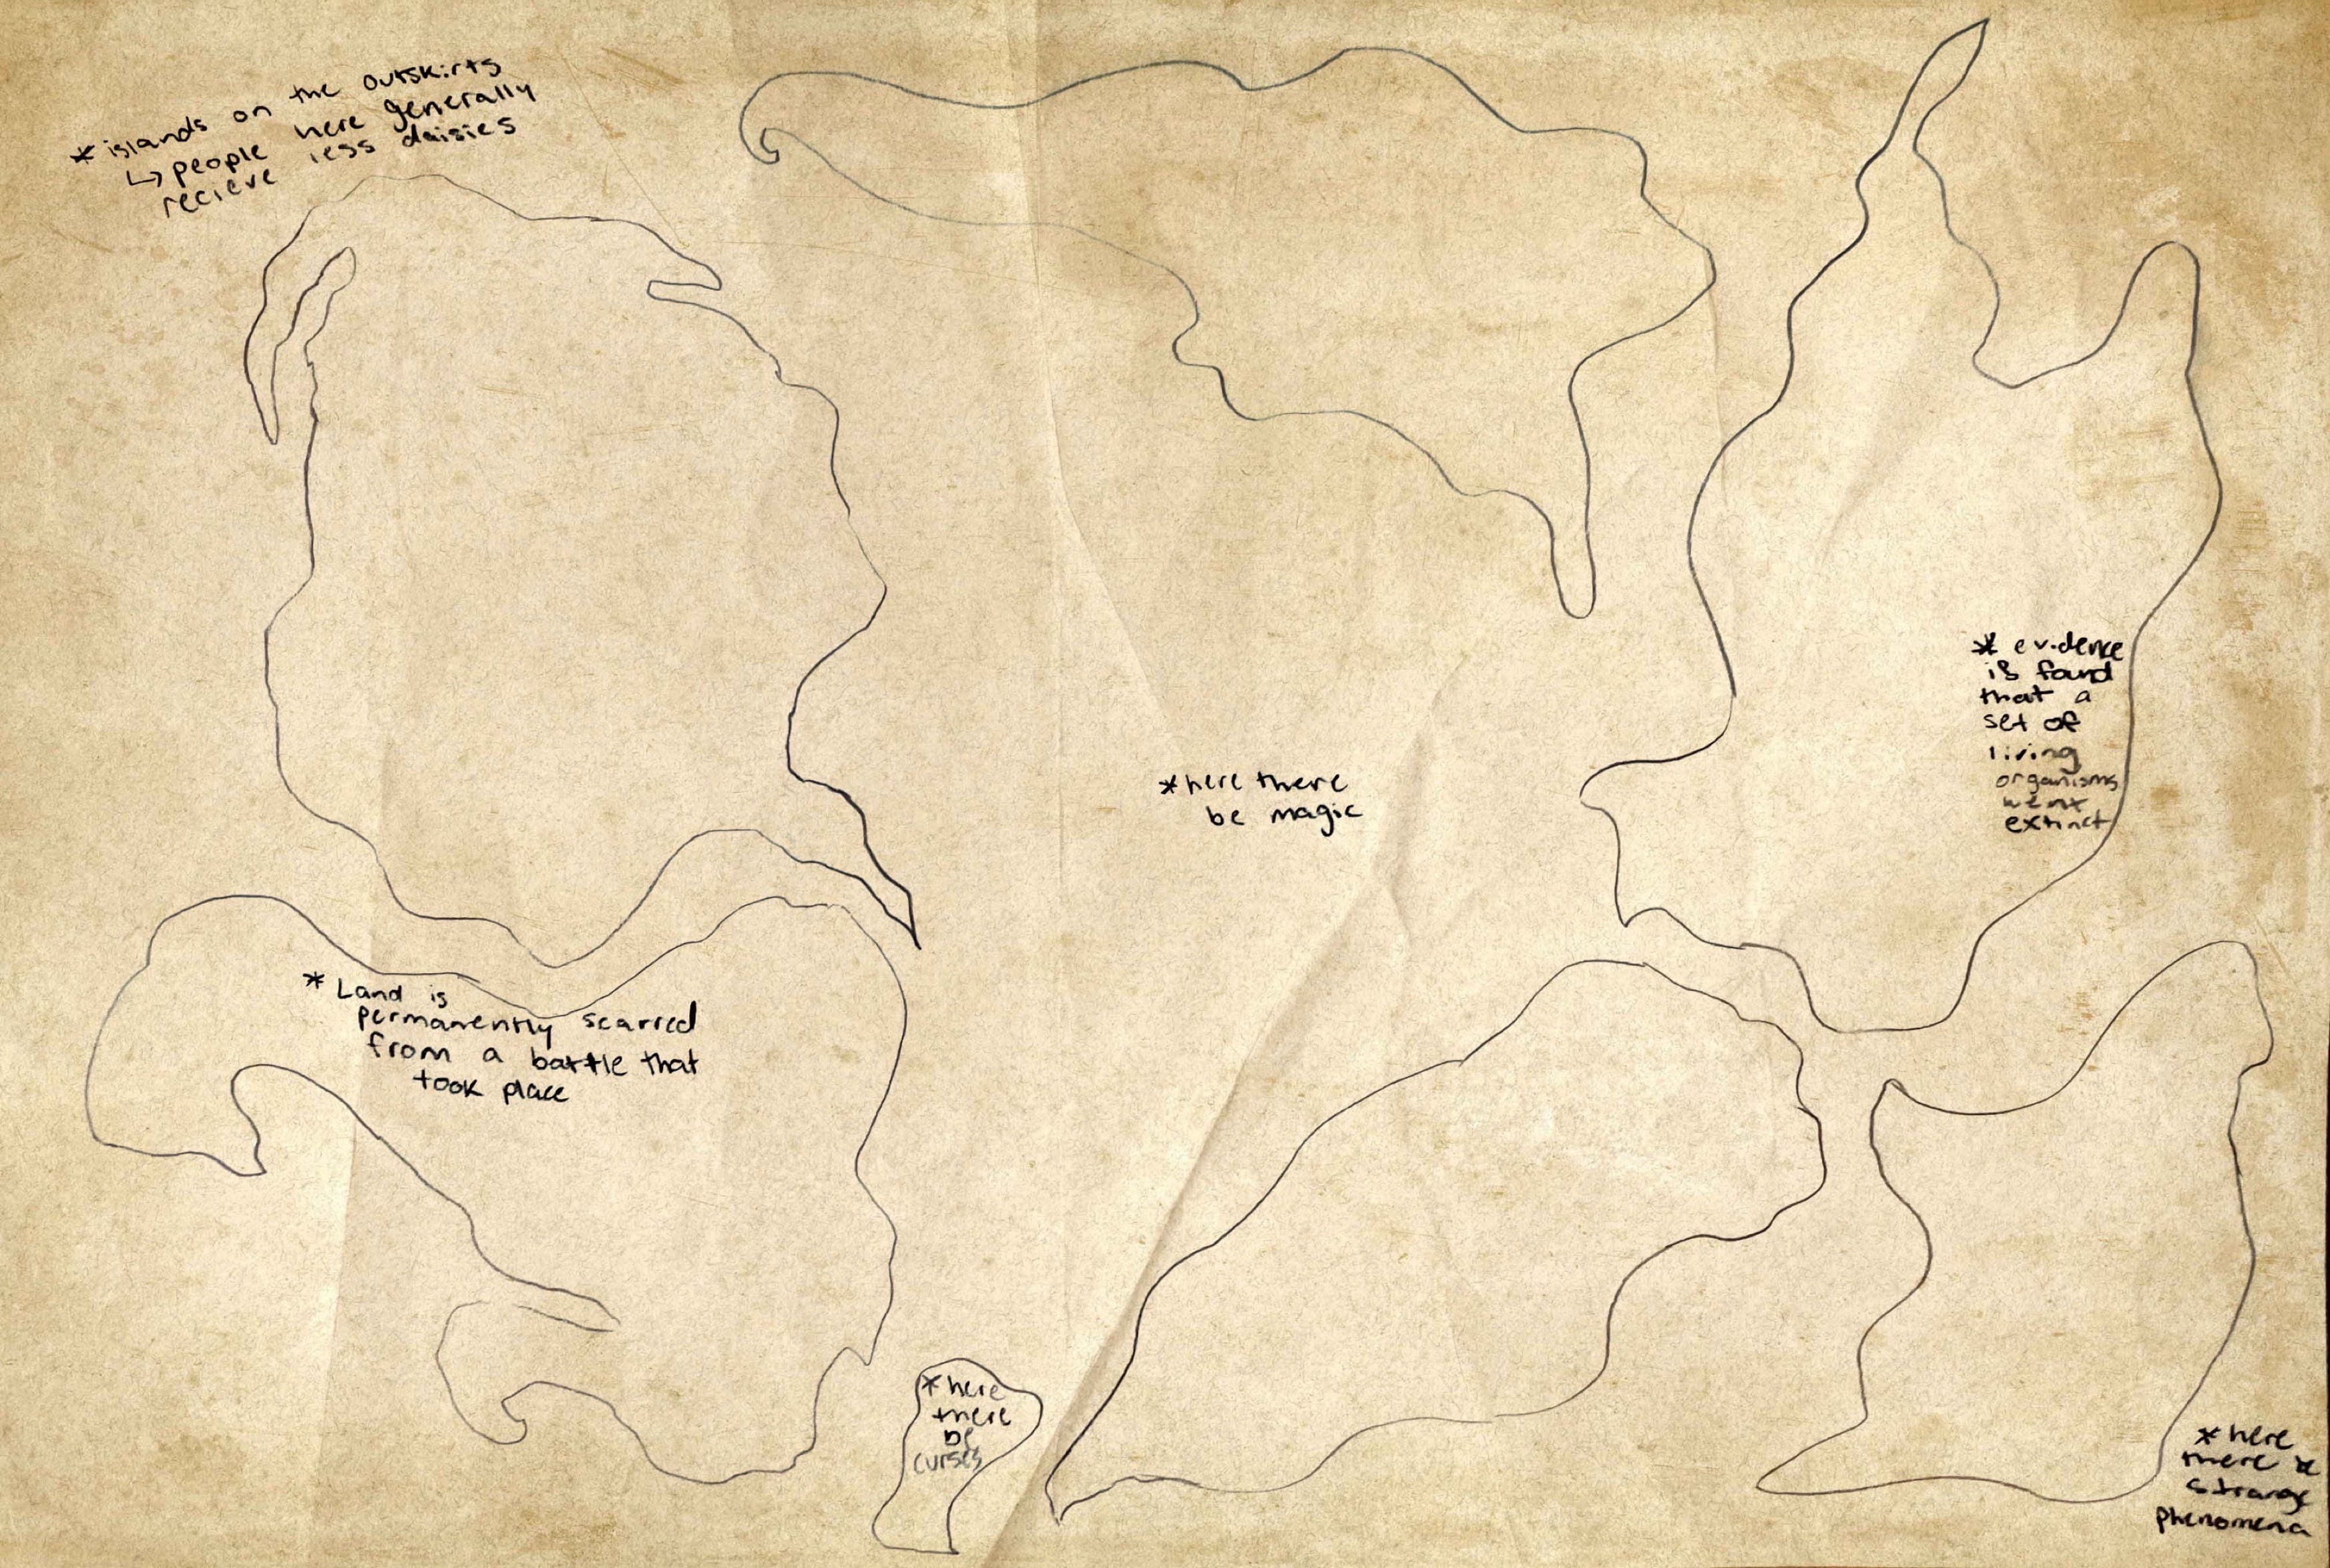 * islands on the outskirts
↳ people here generally
recieve less daisies
* here there
be magic
* evidence
is found
that a
set of
living
organisms
went
extinct
* Land is
permanently scarred
from a battle that
took place
* here
there
be
curses
* here
there be
strange
phenomena